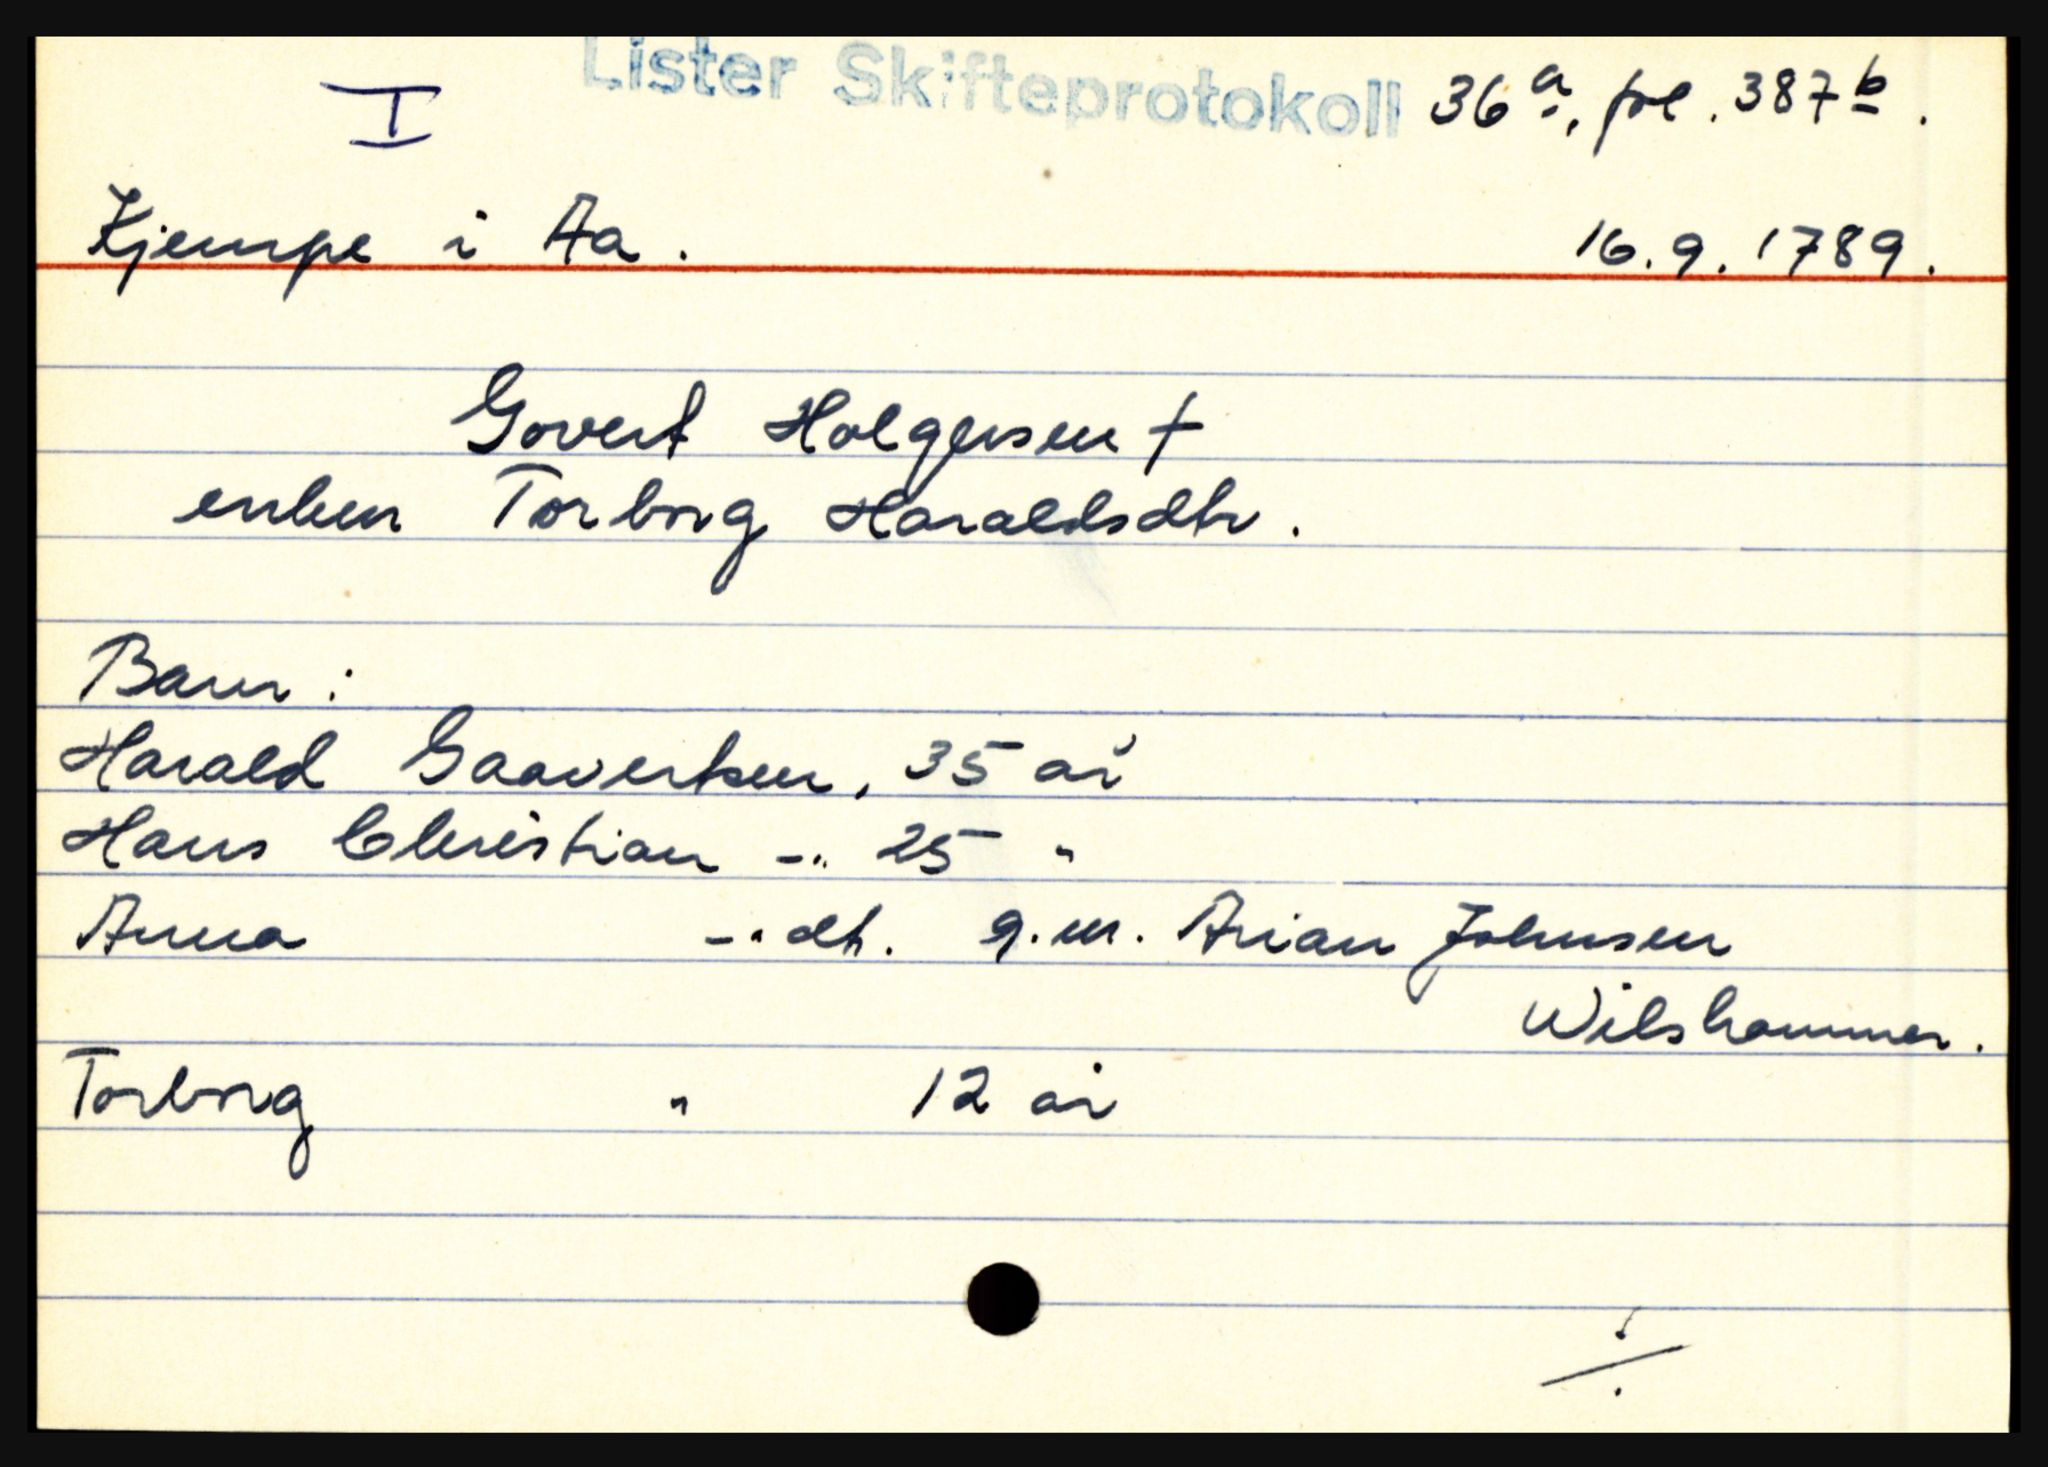 Lister Skifteprotokoll 36a, fol. 387b.
I
Kjempe i Aa. 16.9.1789.
Govert Holgersen †
enken Torborg Haraldsdtr.
Barn:
Harald Gaavertsen, 35 år
Hans Christian -"- 25 "
Anna -"- dtr. g.m. Arian Johnsen
Wilshammer.
Torborg " 12 år